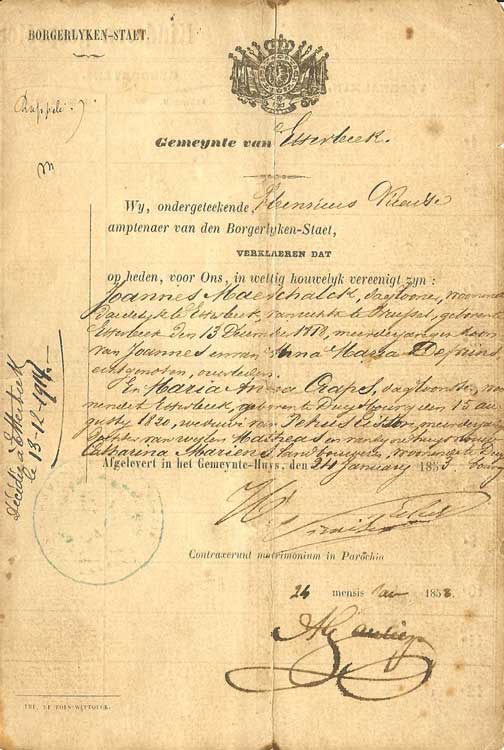 BORGERLYKEN-STAET.
Gemeynte van Etterbeek.
Wy, ondergeteekende, Henricus
amptenaer van den Borgerlyken-Staet,
VERKLAEREN DAT
op heden, voor Ons, in wettig houwelyk vereenigt zyn :
Joannes Maeschalck, daglooner, woonende
Etterbeek Brussel, geboren
Etterbeek den 13 December 1818, meerderjaegen zoon
van Joannes en van Anna Maria
echtgenoten, overleden.
En Maria Anna Craps, dagloonster,
Etterbeek, geboren te Duysbourg den 15 au
gusty 1820, weduwe van meerderjaege
dochter van wylen Matheas en van
Catharina Mariens, landbouwster, woonende te
Afgelevert in het Gemeynte-Huys, den 24 January 1853.
Contraxerunt matrimonium in Parochia
24 mensis 1853.
IMP. DE BOIS-WITTOUCK.
Décédé à Etterbeek
le 13-12-